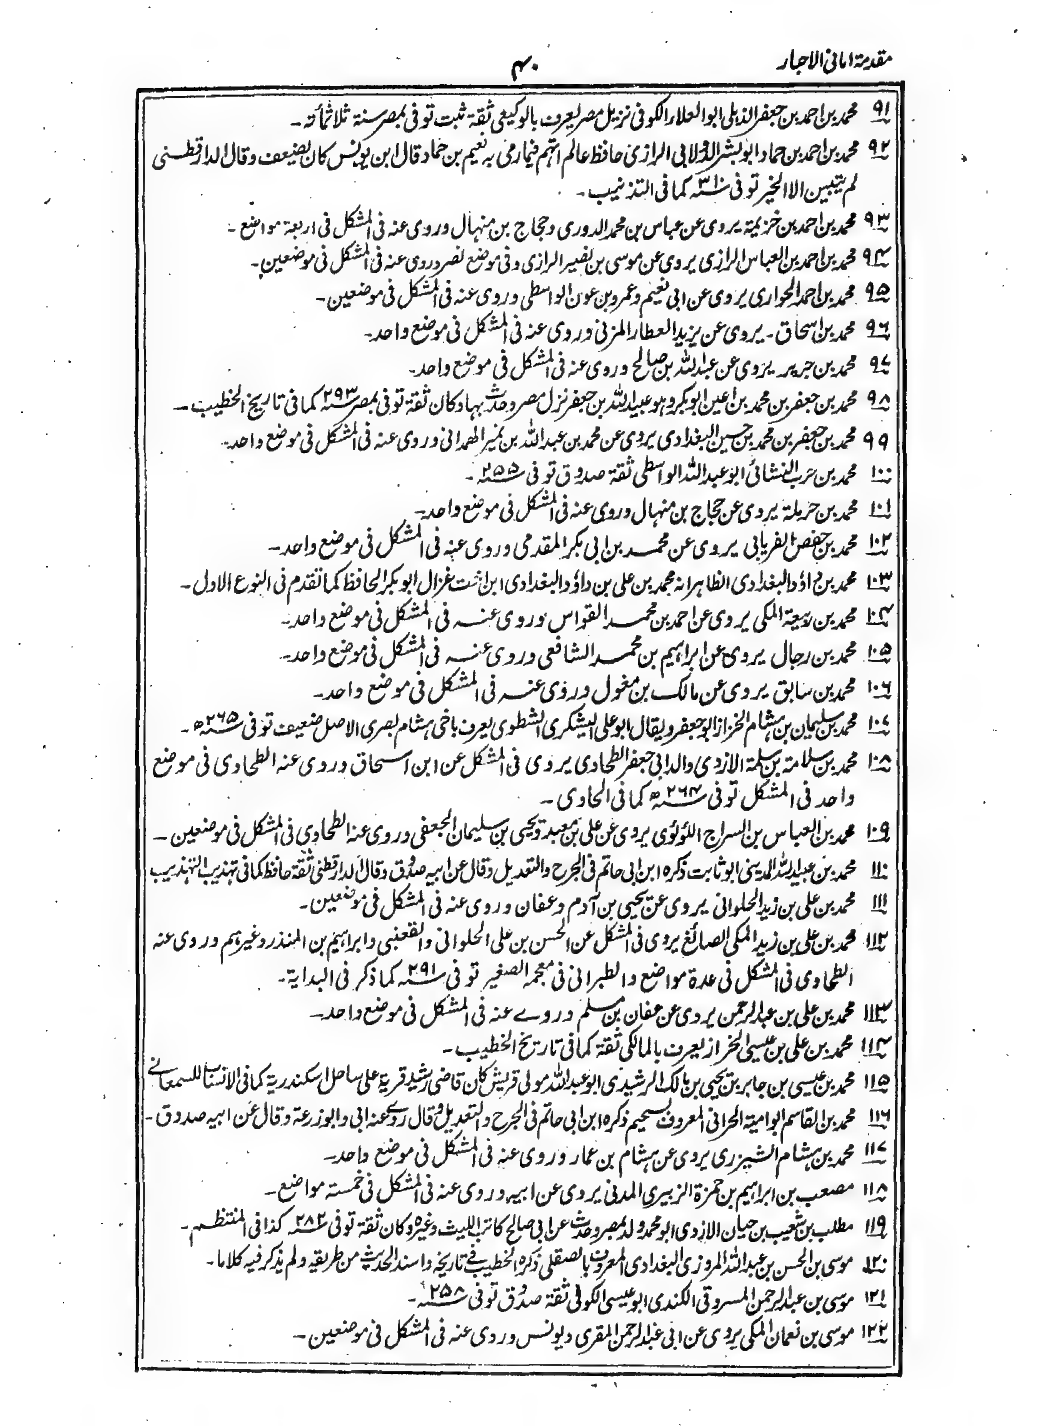 مقدمة امانی الاحبار
۴۰
۹۱ محمد بن احمد بن جعفر الذہلی ابو العلاء الکوفی نزیل مصر یعرف بالوکیعی ثقة ثبت توفی بمصر سنة ثلاثمائة۔
۹۲ محمد بن احمد بن حماد ابو بشر الدولابی الرازی حافظ عالم اتہم فیما رمی بہ نعیم بن حماد قال ابن یونس کان یضعف وقال الدارقطنی
لم یتبین الا الخیر توفی سنة ۳۱۰ کما فی التذنیب۔
۹۳ محمد بن احمد بن خزیمة یروی عن عباس بن محمد الدوری وحجاج بن منہال وروی عنہ فی المشکل فی اربعة مواضع۔
۹۴ محمد بن احمد بن العباس الرازی یروی عن موسی بن نصیر الرازی وفی موضع نصر وروی عنہ فی المشکل فی موضعین۔
۹۵ محمد بن احمد الجواری یروی عن ابی نعیم وعمرو بن عون الواسطی وروی عنہ فی المشکل فی موضعین۔
۹۶ محمد بن اسحاق۔ یروی عن یزید العطار المزنی وروی عنہ فی المشکل فی موضع واحد۔
۹۷ محمد بن جریر یروی عن عبد اللہ بن صالح وروی عنہ فی المشکل فی موضع واحد۔
۹۸ محمد بن جعفر بن محمد بن اعین ابو بکر وہو عبید اللہ بن جعفر نزل مصر وحدث بہا وکان ثقة توفی بمصر سنة ۲۹۳ کما فی تاریخ الخطیب۔
۹۹ محمد بن جعفر بن محمد بن حسین البغدادی یروی عن محمد بن عبد اللہ بن نمیر الہمدانی وروی عنہ فی المشکل فی موضع واحد۔
۱۰۰ محمد بن حرب النشائی ابو عبد اللہ الواسطی ثقة صدوق توفی سنة ۲۵۵۔
۱۰۱ محمد بن حرملة یروی عن حجاج بن منہال وروی عنہ فی المشکل فی موضع واحد۔
۱۰۲ محمد بن حفص الفریابی یروی عن محمد بن ابی بکر المقدمی وروی عنہ فی المشکل فی موضع واحد۔
۱۰۳ محمد بن داؤد البغدادی الظاہر انہ محمد بن علی بن داؤد البغدادی ابن اخت غزال ابو بکر الحافظ کما تقدم فی النوع الاول۔
۱۰۴ محمد بن ربیعة المکی یروی عن احمد بن محمد القواس وروی عنہ فی المشکل فی موضع واحد۔
۱۰۵ محمد بن رجال یروی عن ابراہیم بن محمد الشافعی وروی عنہ فی المشکل فی موضع واحد۔
۱۰۶ محمد بن سابق یروی عن مالک بن مغول وروی عنہ فی المشکل فی موضع واحد۔
۱۰۷ محمد بن سلیمان بن ہشام الخزاز ابو جعفر ویقال ابو علی الیشکری الشطوی یعرف باخی ہشام بصری الاصل ضعیف توفی سنة ۲۶۵ھ۔
۱۰۸ محمد بن سلامة بن سلمة الازدی والد ابی جعفر الطحاوی یروی فی المشکل عن ابن اسحاق وروی عنہ الطحاوی فی موضع
واحد فی المشکل توفی سنة ۲۶۴ھ کما فی الحاوی۔
۱۰۹ محمد بن العباس بن السراج اللؤلؤی یروی عن علی بن معبد ویحیی بن سلیمان الجعفی وروی عنہ الطحاوی فی المشکل فی موضعین۔
۱۱۰ محمد بن عبید اللہ المدینی ابو ثابت ذکرہ ابن ابی حاتم فی الجرح والتعدیل وقال عن ابیہ صدوق وقال الدارقطنی ثقة حافظ کما فی تہذیب التہذیب
۱۱۱ محمد بن علی بن زید الحلوانی یروی عن یحیی بن آدم وعفان وروی عنہ فی المشکل فی موضعین۔
۱۱۲ محمد بن علی بن زید المکی الصائغ یروی فی المشکل عن الحسن بن علی الحلوانی والقعنبی وابراہیم بن المنذر وغیرہم وروی عنہ
الطحاوی فی المشکل فی عدة مواضع والطبرانی فی معجمہ الصغیر توفی سنة ۲۹۱ کما ذکر فی البدایة۔
۱۱۳ محمد بن علی بن عبد الرحمن یروی عن عفان بن مسلم وروے عنہ فی المشکل فی موضع واحد۔
۱۱۴ محمد بن علی بن عیسی الخزاز یعرف بالمالکی ثقة کما فی تاریخ الخطیب۔
۱۱۵ محمد بن عیسی بن جابر بن یحیی بن مالک الرشیدی ابو عبد اللہ مولی قریش کان قاضی رشید قریة علی ساحل اسکندریة کما فی الانساب للسمعانے
۱۱۶ محمد بن القاسم ابو امیة الحرانی المعروف بسحیم ذکرہ ابن ابی حاتم فی الجرح والتعدیل وقال روی عنہ ابی وابو زرعة وقال عن ابیہ صدوق۔
۱۱۷ محمد بن ہشام الشیزری یروی عن ہشام بن عمار وروی عنہ فی المشکل فی موضع واحد۔
۱۱۸ مصعب بن ابراہیم بن حمزة الزبیری المدنی یروی عن ابیہ وروی عنہ فی المشکل فی خمسة مواضع۔
۱۱۹ مطلب بن شعیب بن حیان الازدی ابو محمد ولد بمصر وحدث عن ابی صالح کاتب اللیث وغیرہ وکان ثقة توفی سنة ۲۸۲ کذا فی المنتظم۔
۱۲۰ موسی بن الحسن بن عبد اللہ المروزی البغدادی المعروف بالصقلی ذکرہ الخطیب فی تاریخہ واسند الحدیث من طریقہ ولم یذکر فیہ کلاما۔
۱۲۱ موسی بن عبد الرحمن المسروقی الکندی ابو عیسی الکوفی ثقة صدوق توفی سنة ۲۵۸۔
۱۲۲ موسی بن نعمان المکی یروی عن ابی عبد الرحمن المقری ویونس وروی عنہ فی المشکل فی موضعین۔